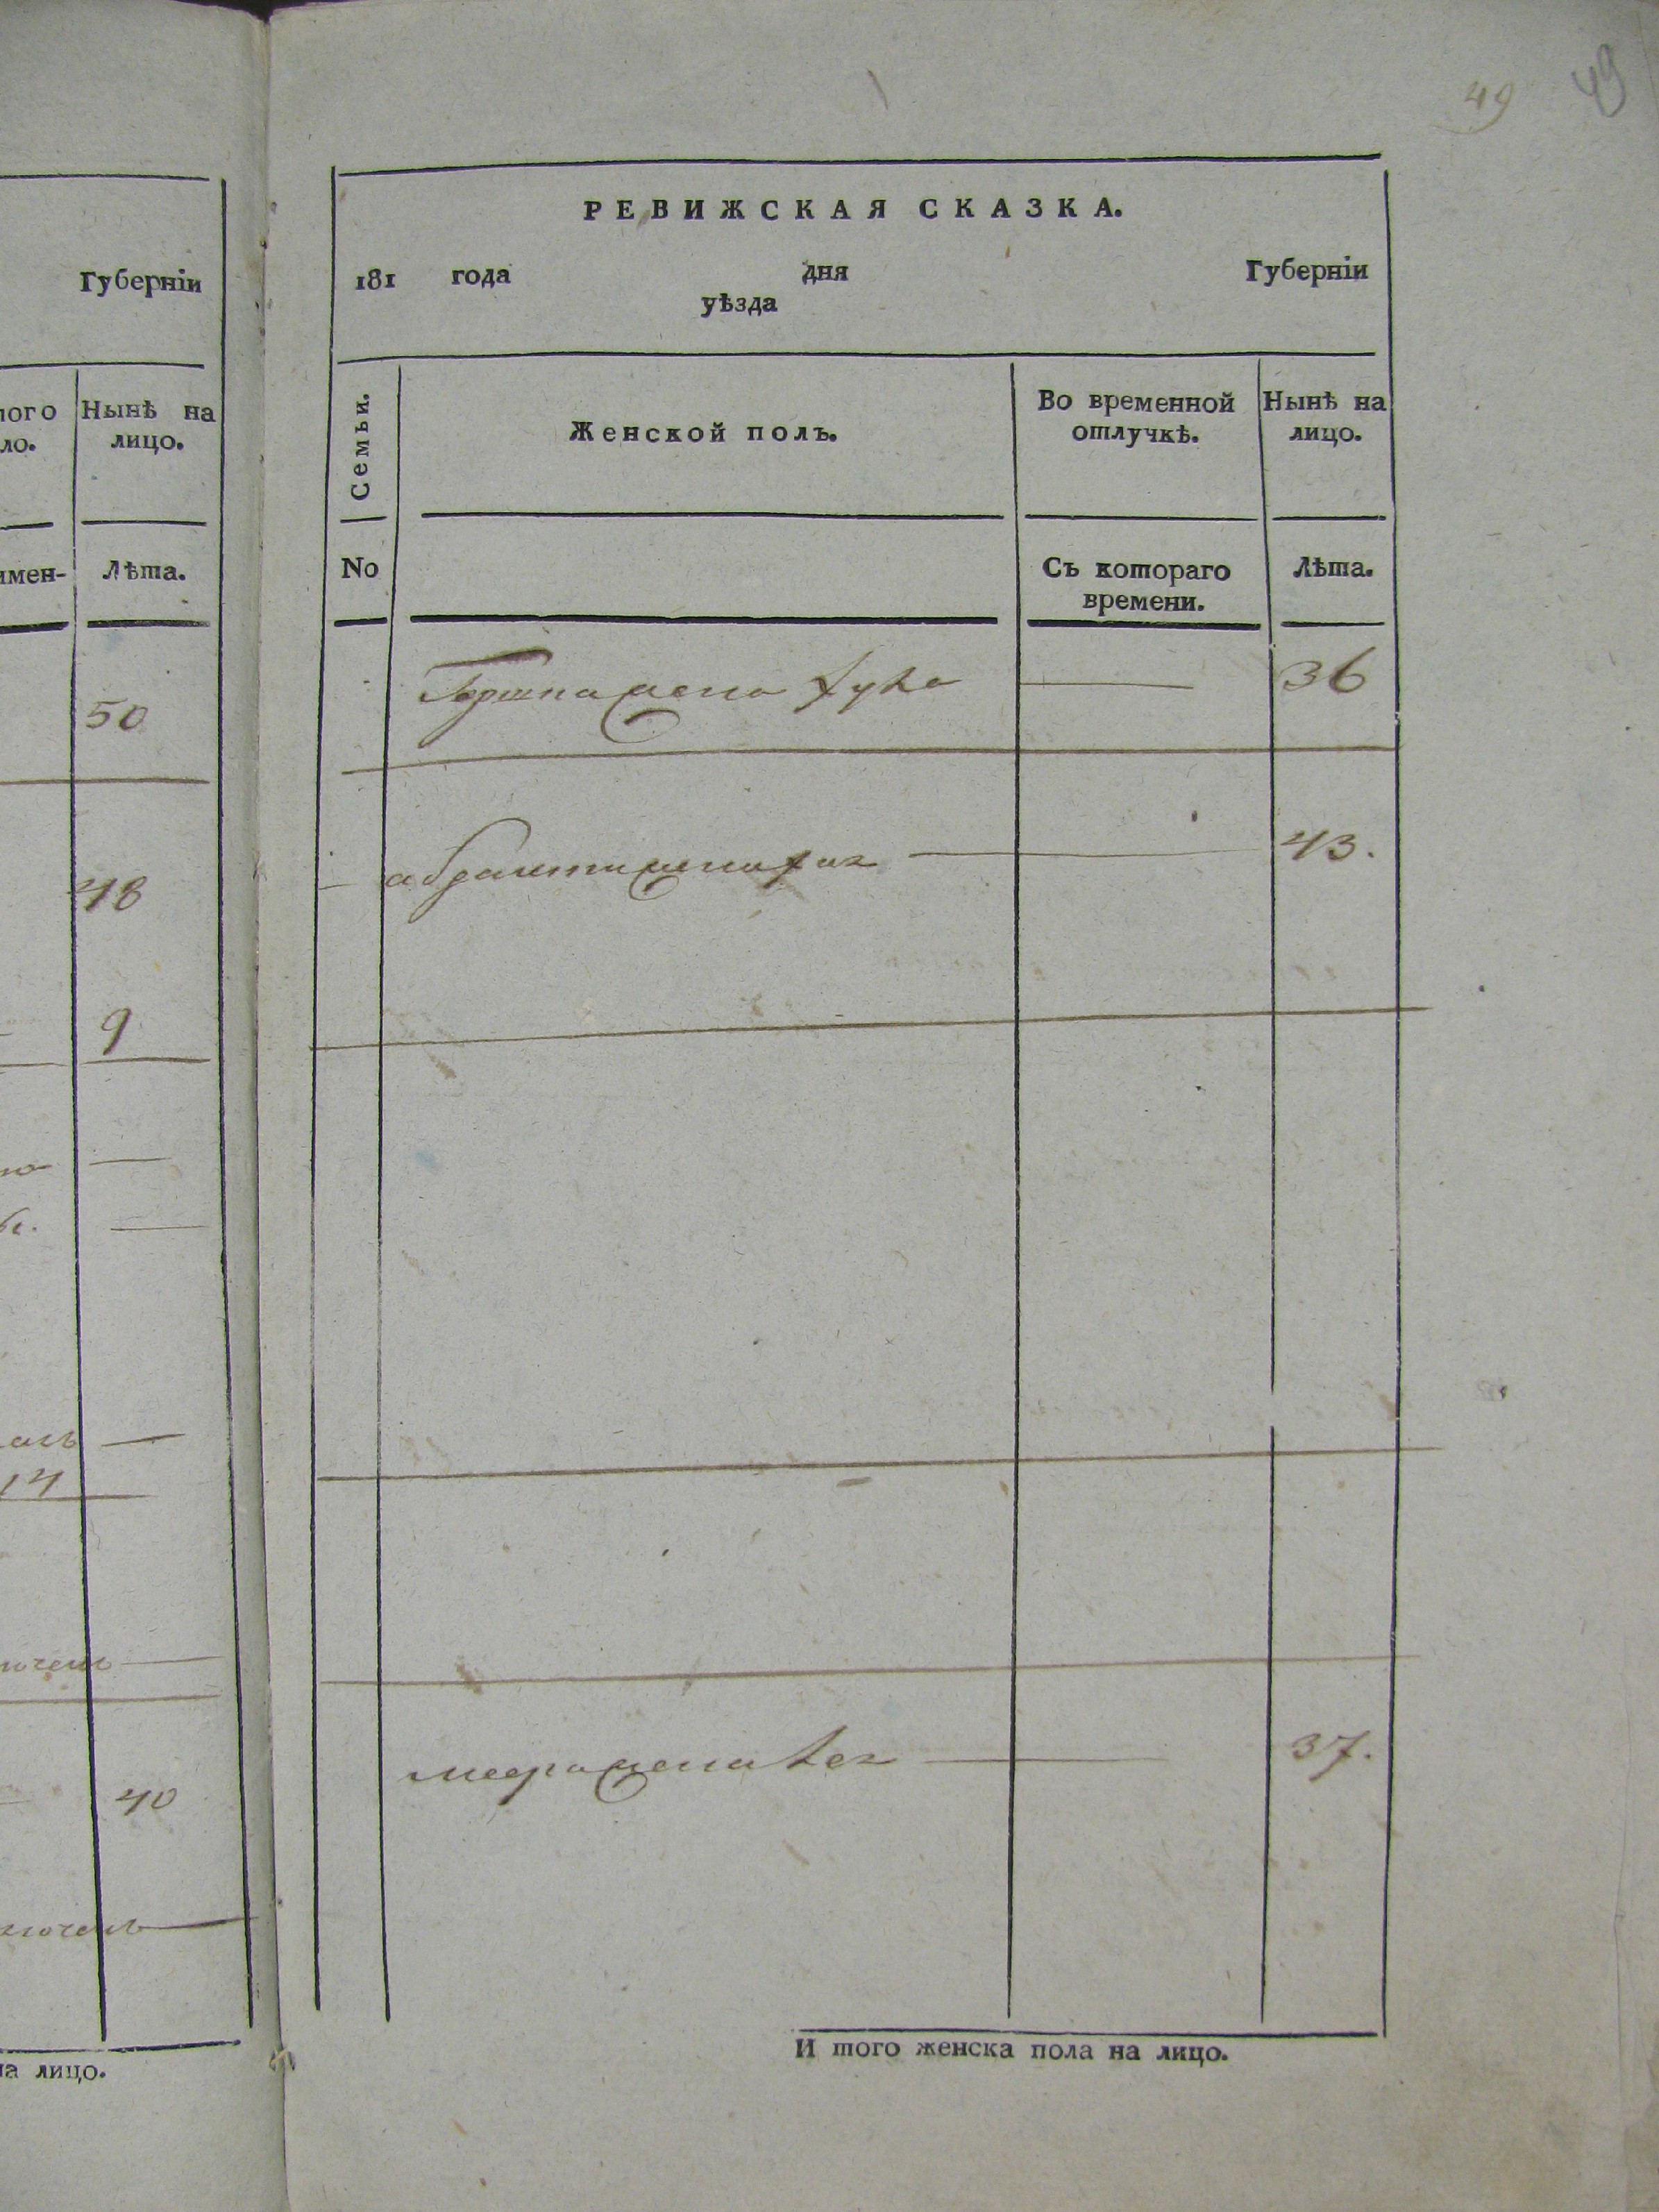 49 49
Губерніи
Нынѣ на
лицо.
Лѣта.
50
48
9
14
40
на лицо.
РЕВИЖСКАЯ СКАЗКА.
181 года дня Губерніи
уѣзда
Семьи.
Женской полъ.
Во временной
отлучкѣ.
Нынѣ на
лицо.
No
Съ котораго
времени.
Лѣта.
жена 36
жена 43.
меера жена 37.
И того женска пола на лицо.